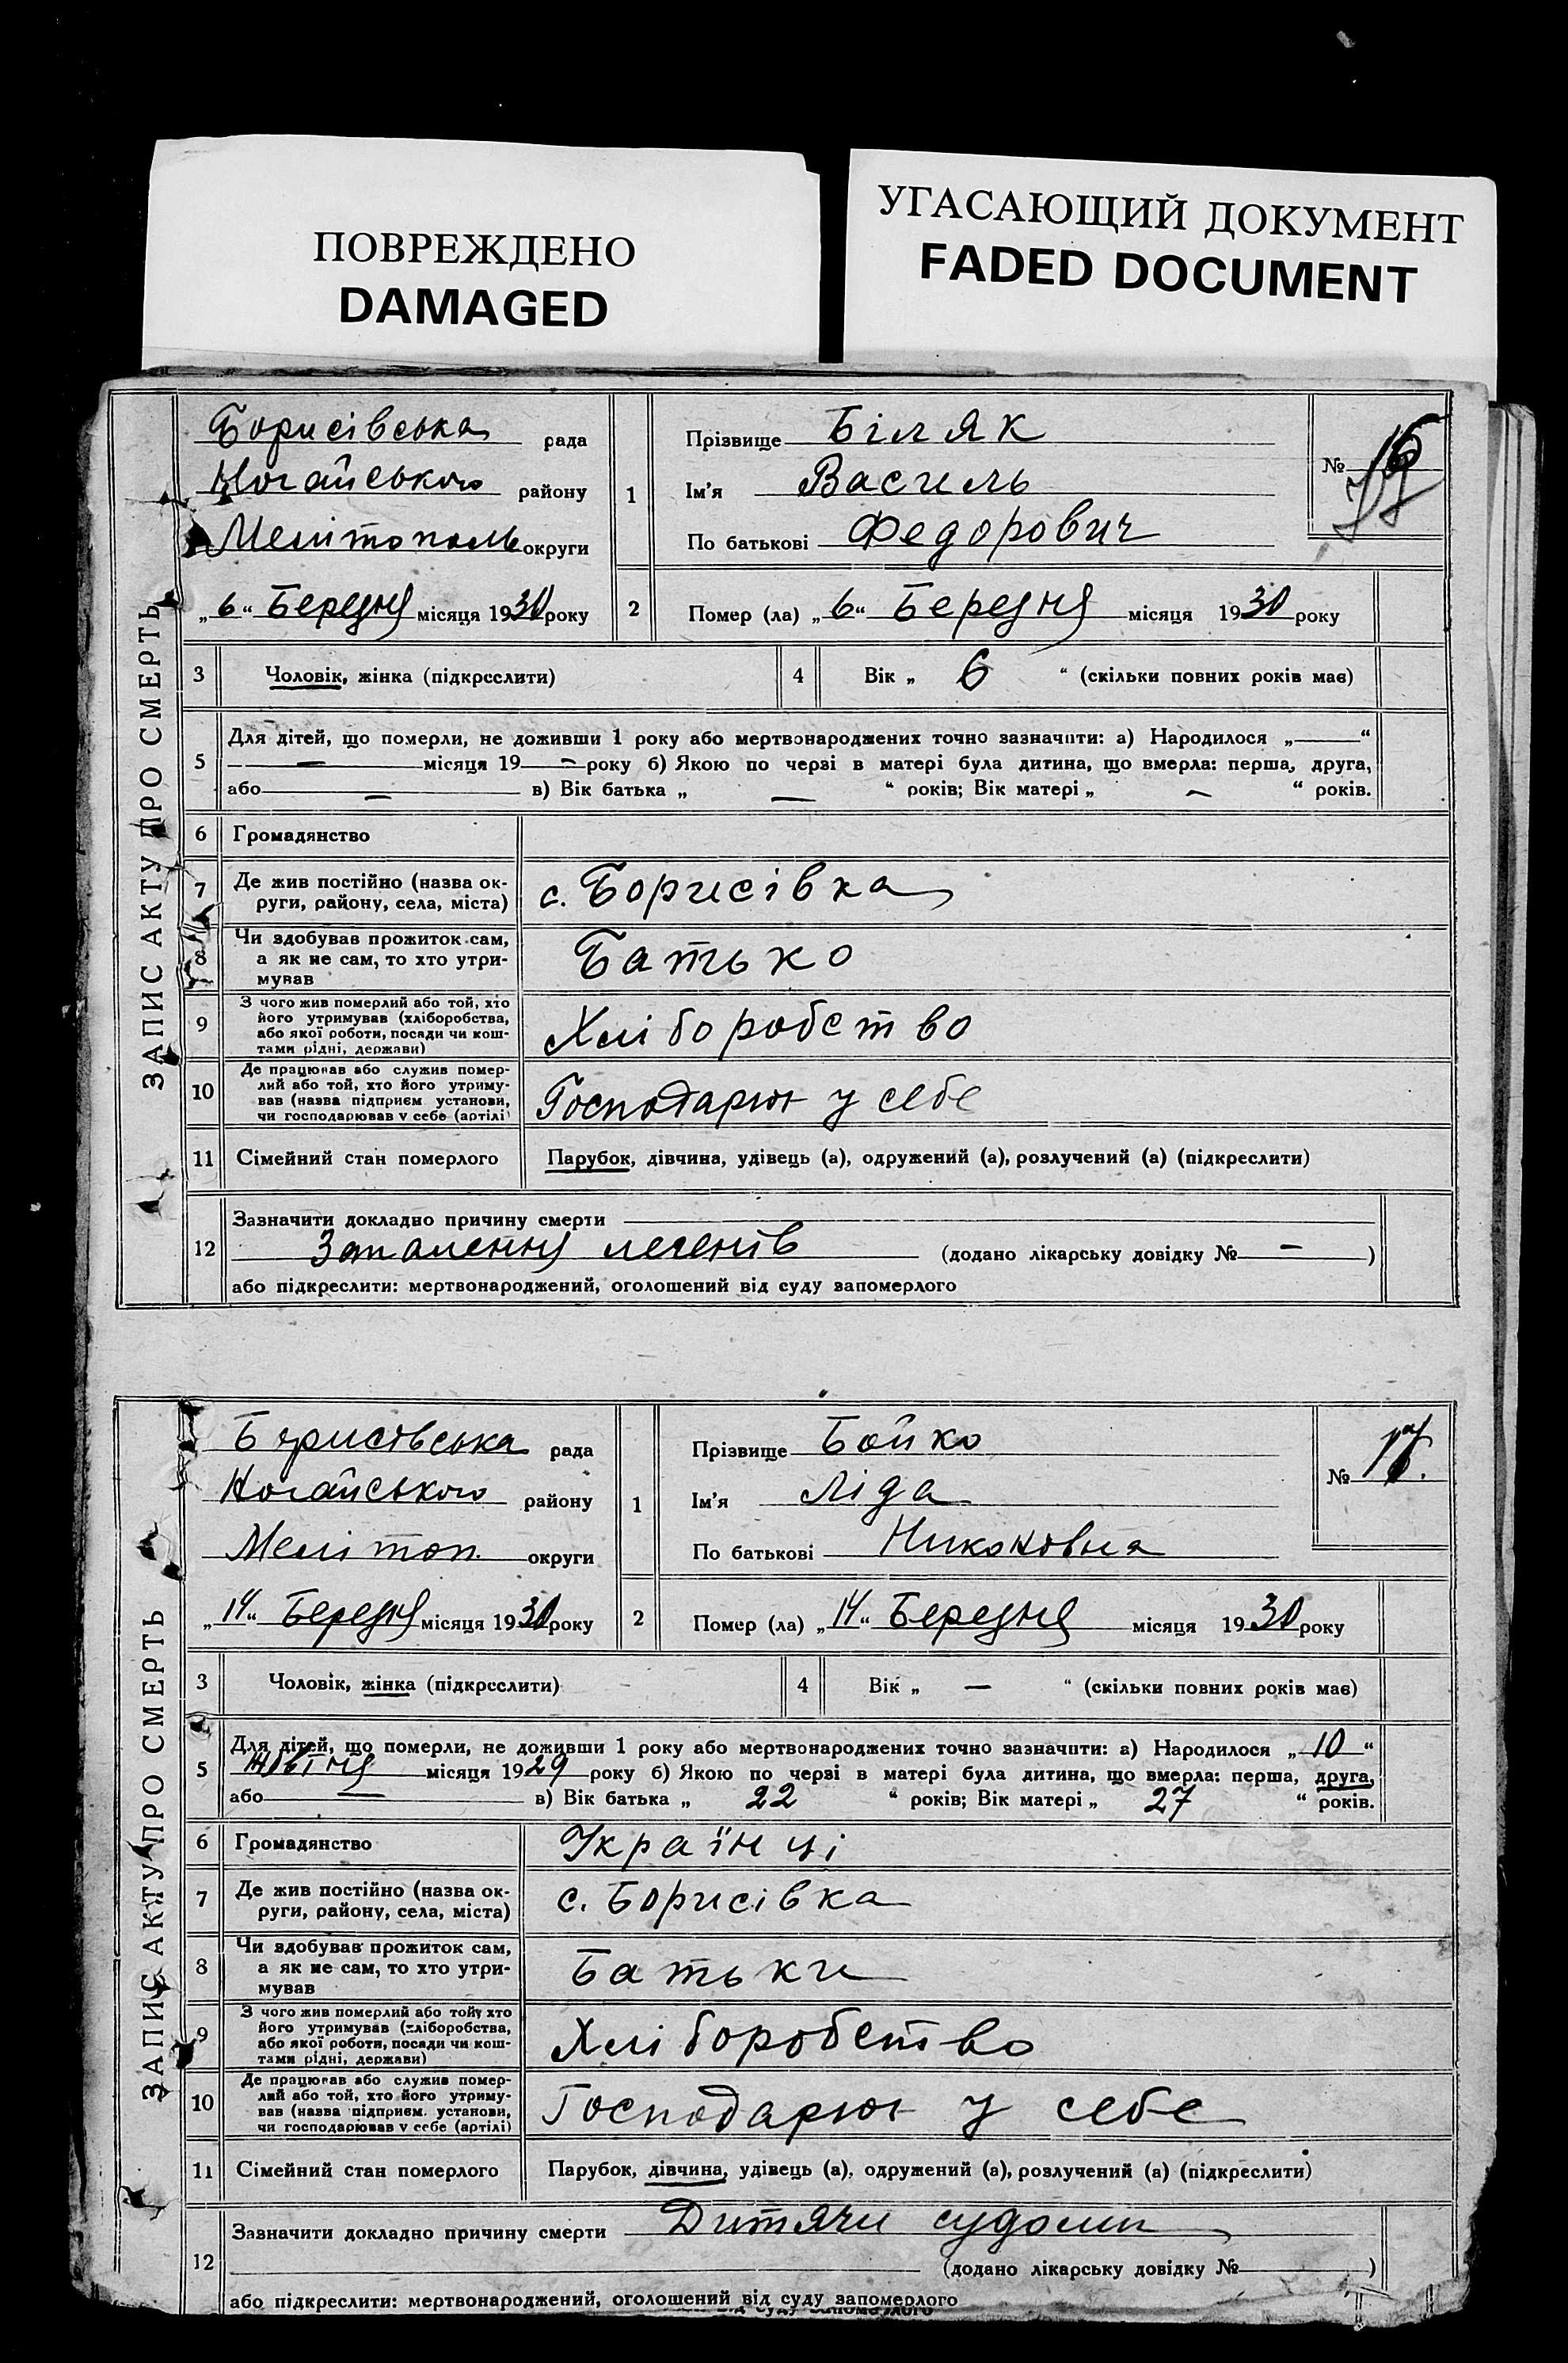 ПОВРЕЖДЕНО
DAMAGED
УГАСАЮЩИЙ ДОКУМЕНТ
FADED DOCUMENT
ЗАПИС АКТУ ПРО СМЕРТЬ
Борисівська рада
Ногайського району
Мелітополь округи
„6“ Березня місяця 1930 року
1
Прізвище Біляк
Ім'я Василь
По батькові Федорович
№
2
Помер (ла) „6“ Березня місяця 1930 року
3 Чоловік, жінка (підкреслити)
4 Вік „ 6 “ (скільки повних років має)
5 Для дітей, що померли, не доживши 1 року або мертвонароджених точно зазначити: а) Народилося „—“
— місяця 19 — року б) Якою по черзі в матері була дитина, що вмерла: перша, друга,
або — в) Вік батька „ — “ років; Вік матері „ — “ років.
6 Громадянство
7 Де жив постійно (назва ок-
руги, району, села, міста) с. Борисівка
8 Чи здобував прожиток сам,
а як не сам, то хто утри-
мував Батько
9 З чого жив померлий або той, хто
його утримував (хліборобства,
або якої роботи, посади чи кош-
тами рідні, держави) Хліборобство
10 Де працював або служив помер-
лий або той, хто його утриму-
вав (назва підприєм. установи,
чи господарював у себе (артілі) Господарює у себе
11 Сімейний стан померлого Парубок, дівчина, удівець (а), одружений (а), розлучений (а) (підкреслити)
12 Зазначити докладно причину смерти
Запалення легенів (додано лікарську довідку № — )
або підкреслити: мертвонароджений, оголошений від суду запомерлого
ЗАПИС АКТУ ПРО СМЕРТЬ
Борисівська рада
Ногайського району
Мелітоп. округи
„14“ Березня місяця 1930 року
1
Прізвище Бойко
Ім'я Ліда
По батькові Никоновна
№
2
Помер (ла) „14“ Березня місяця 1930 року
3 Чоловік, жінка (підкреслити)
4 Вік „ — “ (скільки повних років має)
5 Для дітей, що померли, не доживши 1 року або мертвонароджених точно зазначити: а) Народилося „10“
Жовтня місяця 1929 року б) Якою по черзі в матері була дитина, що вмерла: перша, друга,
або — в) Вік батька „ 22 “ років; Вік матері „ 27 “ років.
6 Громадянство Українці
7 Де жив постійно (назва ок-
руги, району, села, міста) с. Борисівка
8 Чи здобував прожиток сам,
а як не сам, то хто утри-
мував Батьки
9 З чого жив померлий або той, хто
його утримував (хліборобства,
або якої роботи, посади чи кош-
тами рідні, держави) Хліборобство
10 Де працював або служив помер-
лий або той, хто його утриму-
вав (назва підприєм. установи,
чи господарював у себе (артілі) Господарює у себе
11 Сімейний стан померлого Парубок, дівчина, удівець (а), одружений (а), розлучений (а) (підкреслити)
12 Зазначити докладно причину смерти Дитячи судоми
(додано лікарську довідку № )
або підкреслити: мертвонароджений, оголошений від суду запомерлого